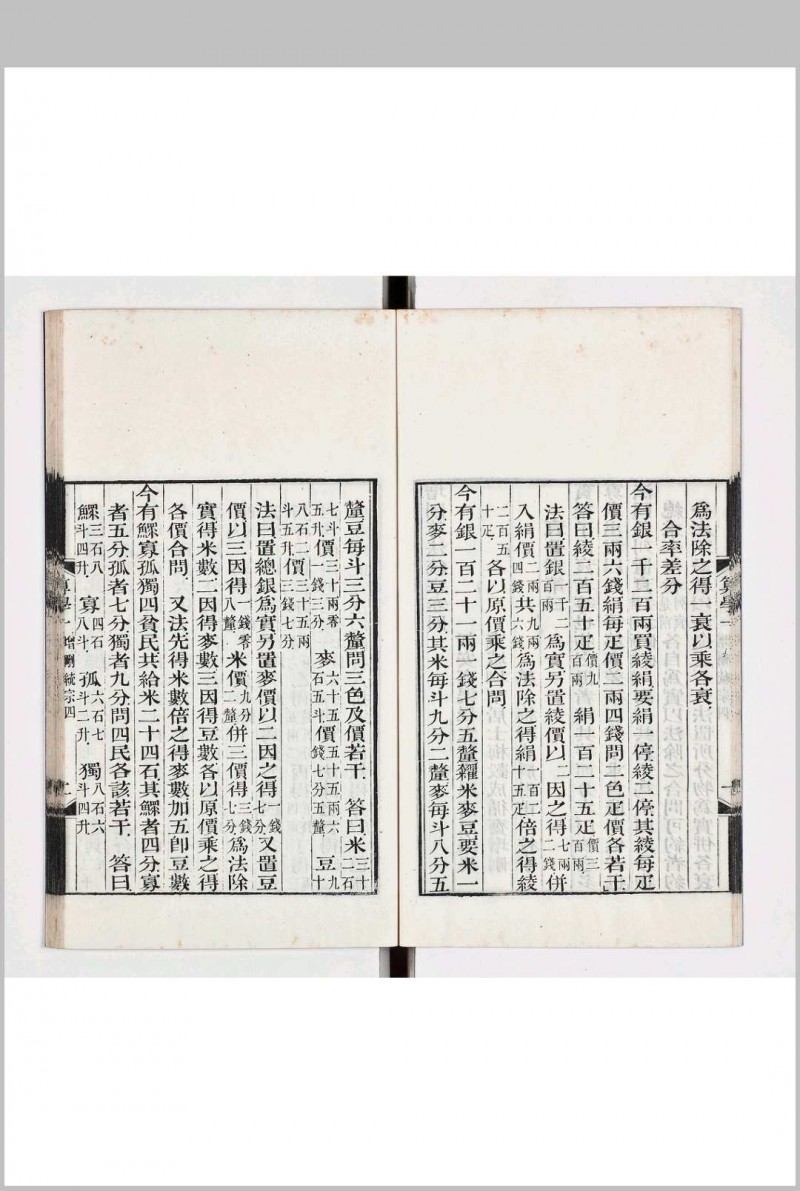 爲法除之得一衰以乘各衰
合率差分
今有銀一千二百兩買綾絹要絹一停綾二停其綾每疋
價三兩六錢絹每疋價二兩四錢問二色疋價各若干
答曰綾二百五十疋價九百兩 絹一百二十五疋價三百兩
法曰置銀一千二百兩爲實另置綾價以二因之得七兩二錢併
入絹價二兩四錢共九兩六錢爲法除之得絹一百二十五疋倍之得綾
二百五十疋各以原價乘之合問
今有銀一百二十一兩一錢七分五釐糴米麥豆要米一
分麥二分豆三分其米每斗九分二釐麥每斗八分五
釐豆每斗三分六釐問三色及價若干 答曰米三十二石
七斗五升價三十兩零一錢三分 麥六十五石五斗價五十五兩六錢七分五釐 豆九十
八石二斗五升價三十五兩三錢七分
法曰置總銀爲實另置麥價以二因之得一錢七分又置豆
價以三因得一錢零八釐米價九分二釐併三價得三錢七分爲法除
實得米數二因得麥數三因得豆數各以原價乘之得
各價合問 又法先得米數倍之得麥數加五卽豆數
今有鰥寡孤獨四貧民共給米二十四石其鰥者四分寡
者五分孤者七分獨者九分問四民各該若干 答曰
鰥三石八斗四升 寡四石八斗 孤六石七斗二升 獨八石六斗四升
算學一 增刪統宗四 二